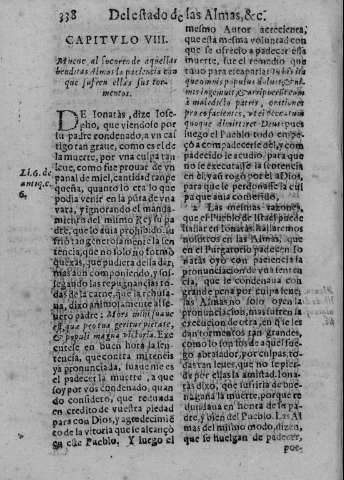 338 Del estado de las Almas, &c.
CAPITVLO VIII.
Mueue, al socorro de aquellas
benditas Almas la paciencia con
que sufren ellas sus tor-
mentos.
DE Ionatàs, dize Iose-
pho, que viendose por
su padre condenado, a vn cas
tigo tan graue, como es el de
la muerte, por vna culpa tan
leue, como fue prouar de vn
panal de miel, cantidad tan pe
queña, quanto lo era lo que
podia venir en la pũta de vna
vara, y ignorando el manda-
miento del mismo Rey su pa
dre, que lo auia prohibido: su
friò tan generosamente la sen
tencia, que no solo no formò
quexas, que pudiera de la dar,
mas aun componiendo, y sos-
segando las repugnancias to
das de la carne, que la rehusa-
ua, dixo animosamente a su
seuero padre: Mors mihi suaue
est, quæ pro tua geritur pietate,
& populi magna victoria. Exe
cutese en buen hora la sen-
tencia, que contra mi teneis
ya pronunciada, suaue me es
el padecer la muerte, a que
soy por vos condenado, quan
do considero, que redunda
en credito de vuestra piedad
para con Dios, y agradecimiẽ
to de la vitoria que se alcançò
en este Pueblo. Y luego el
Li. 6. de
antiq. c.
6.
mesmo Autor acrecienta,
que esta mesma voluntad con
que se ofrecio a padecer essa
muerte, fue el remedio que
tuuo para escaparla:
luego el Pueblo todo empe-
çò a compadecerle, y com pa
decido le acudio, para que
no se executasse la sentencia
en el, rogò por el al Dios,
para que le perdonasse la cul
pa que auia cometido.
2 Las mesmas razones,
que el Pueblo de Israel puede
hallar en Ionatàs, hallaremos
nosotros en las Almas, que
en el Purgatorio padecen. Io
natàs oyò con paciencia la
pronunciacion de vna senten
cia, que le condenaua con
grande pena por culpa leue;
las Almas no solo oyen la
pronunciacion, mas sufren la
execucion de otra, en que les
dan tormentos tan grandes,
como lo son los de aquel fue
go abrasador, por culpas, to-
davia tan leues, que no se pier
de por ellas la amistad. Iona-
tàs dixo, que sufriria de bue-
na gana la muerte, porque re
dundaua en honra de su pa-
dre, y bien del Pueblo. Las Al
mas del mismo modo, dizen,
que se huelgan de padecer,
por-